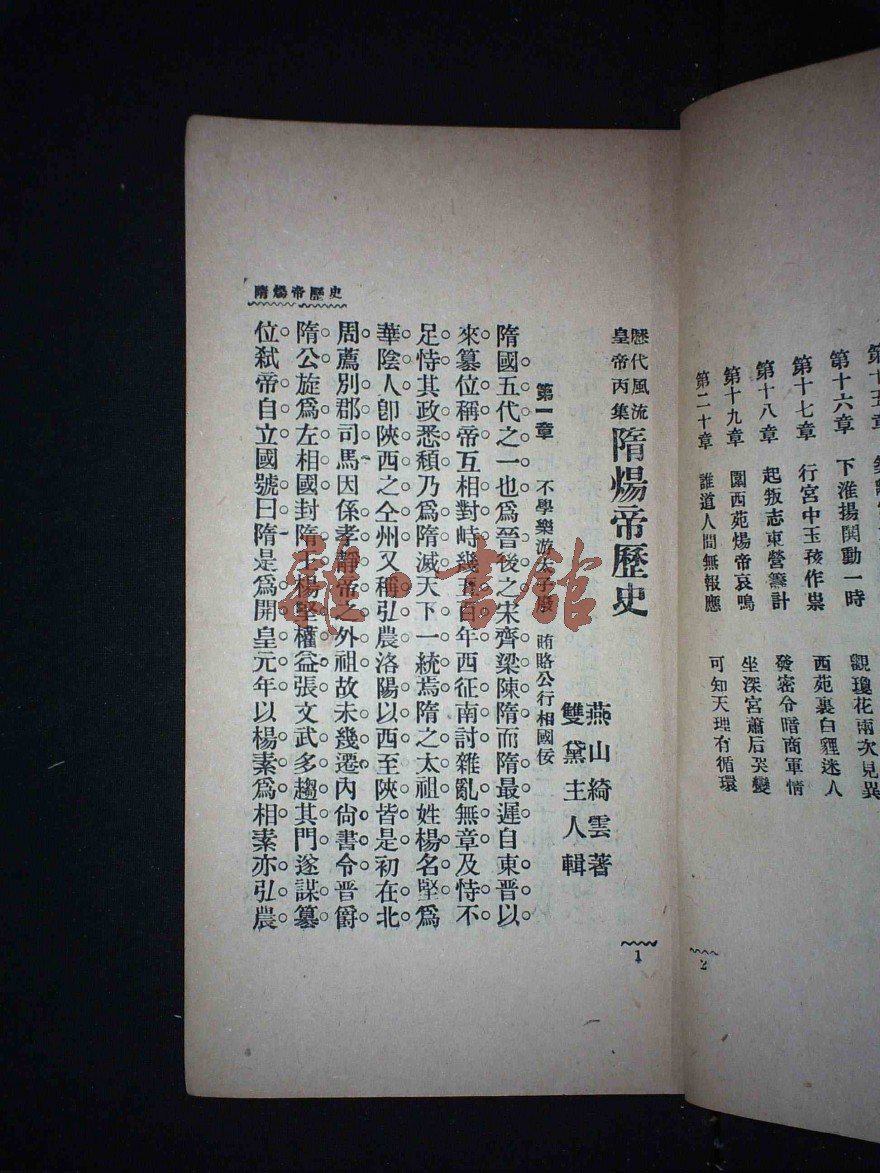 第十六章 下淮揚閧動一時 觀瓊花兩次見異
第十七章 行宮中玉孩作祟 西苑裏白貍迷人
第十八章 起叛志東營籌計 發密令暗商軍情
第十九章 圍西苑煬帝哀鳴 坐深宮蕭后哭變
第二十章 誰道人間無報應 可知天理有循環
2
歷代風流
皇帝丙集
隋煬帝歷史
燕山綺雲著
雙黛主人輯
1
第一章 不學樂游太子廢 賄賂公行相國佞
隋國五代之一也爲晉後之宋齊梁陳隋而隋最遲自東晉以
來篡位稱帝互相對峙幾五百年西征南討雜亂無章及恃不
足恃其政悉頹乃爲隋滅天下一統焉隋之太祖姓楊名堅爲
華陰人卽陝西之仝州又稱弘農洛陽以西至陝皆是初在北
周薦別郡司馬因係孝靜帝之外祖故未幾遷內尙書令晉爵
隋公旋爲左相國封隋王楊堅權益張文武多趨其門遂謀篡
位弑帝自立國號曰隋是爲開皇元年以楊素爲相素亦弘農
隋煬帝歷史
雜·書館